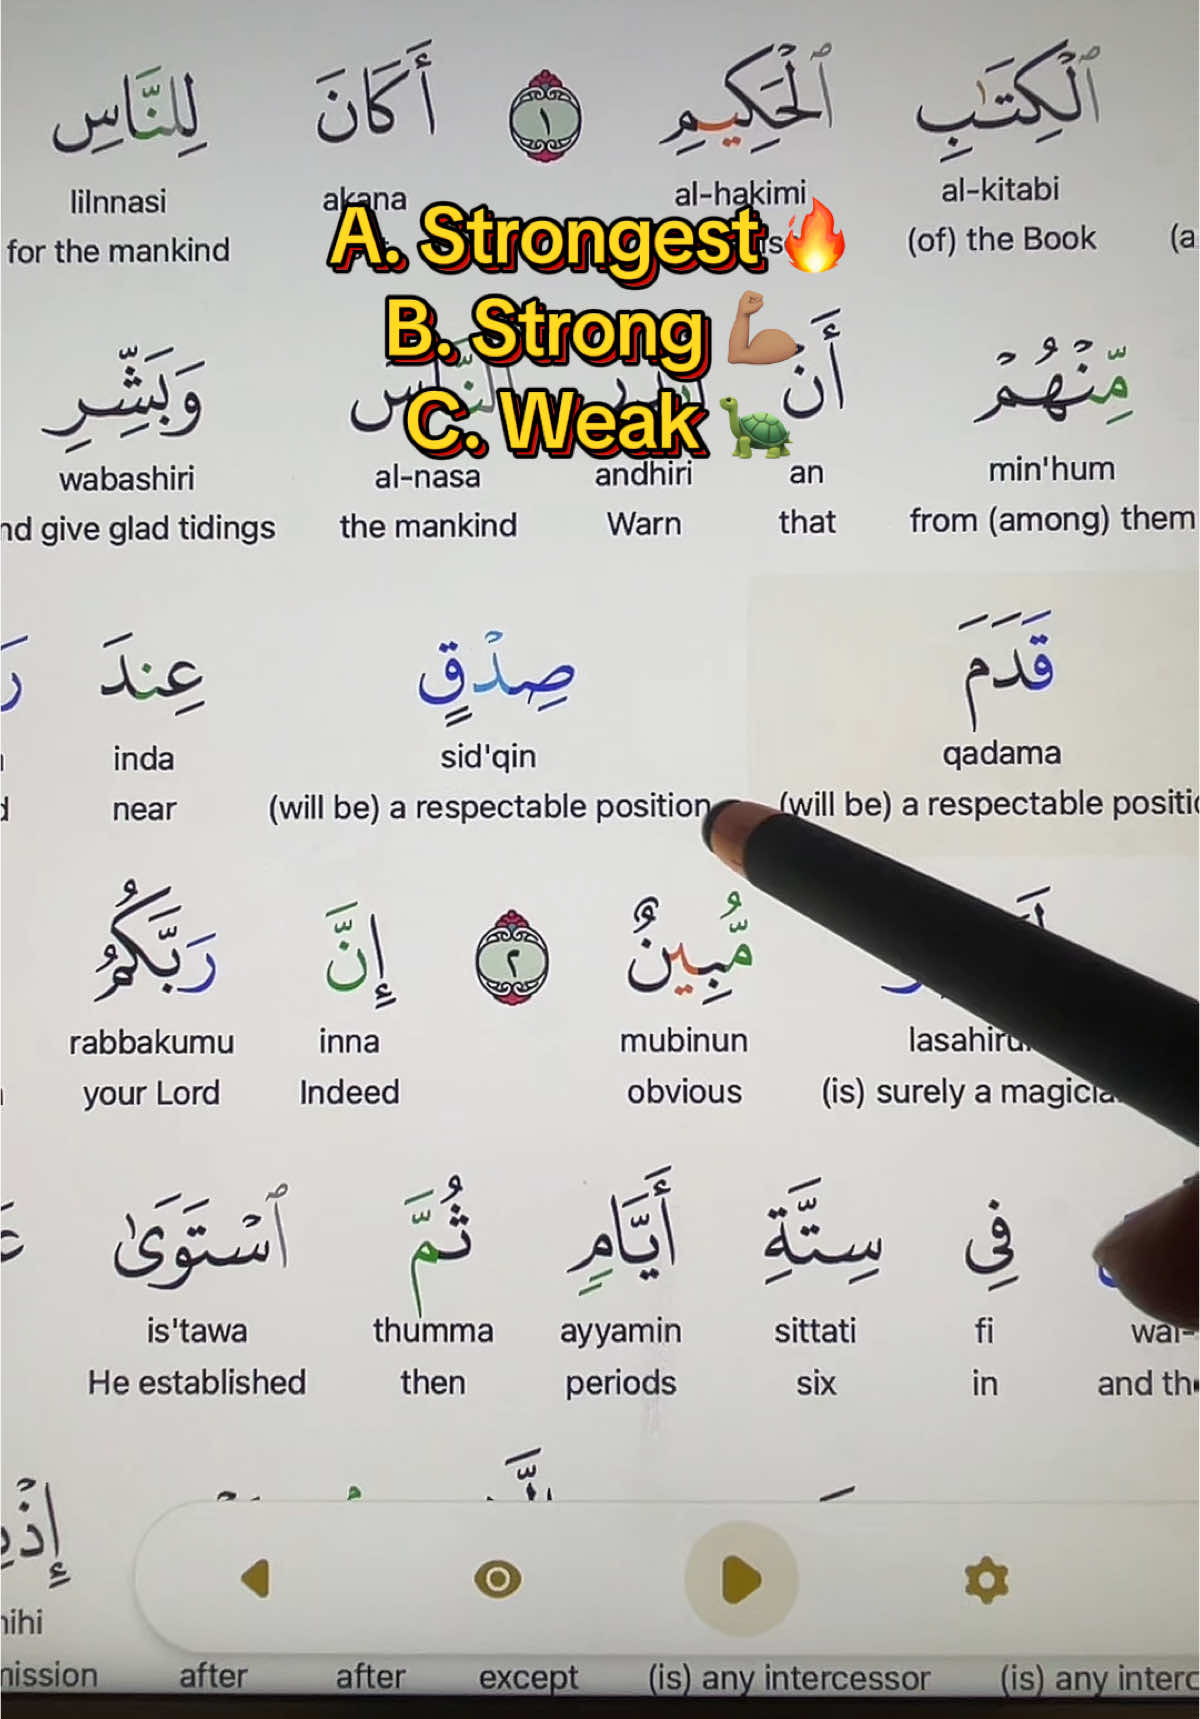 ٱلْكِتَـٰبِ ٱلْحَكِيمِ ١ أَكَانَ لِلنَّاسِ
al-kitabi al-hakimi akana lilnnasi
(of) the Book for the mankind
A. Strongest🔥
B. Strong 💪🏽
C. Weak 🐢
مِّنْهُمْ أَنْ وَبَشِّرِ
min'hum an andhiri al-nasa wabashiri
from (among) them that Warn the mankind give glad tidings
قَدَمَ صِدْقٍ عِندَ
qadama sid'qin inda
(will be) a respectable (will be) a respectable position near
مُّبِينٌ ٢ إِنَّ رَبَّكُمُ
mubinun inna rabbakumu
(is) surely a obvious Indeed your Lord
فِى سِتَّةِ أَيَّامٍ ثُمَّ ٱسْتَوَىٰ
fi sittati ayyamin thumma is'tawa
and in six periods then He established
(is) any (is) any intercessor except after after